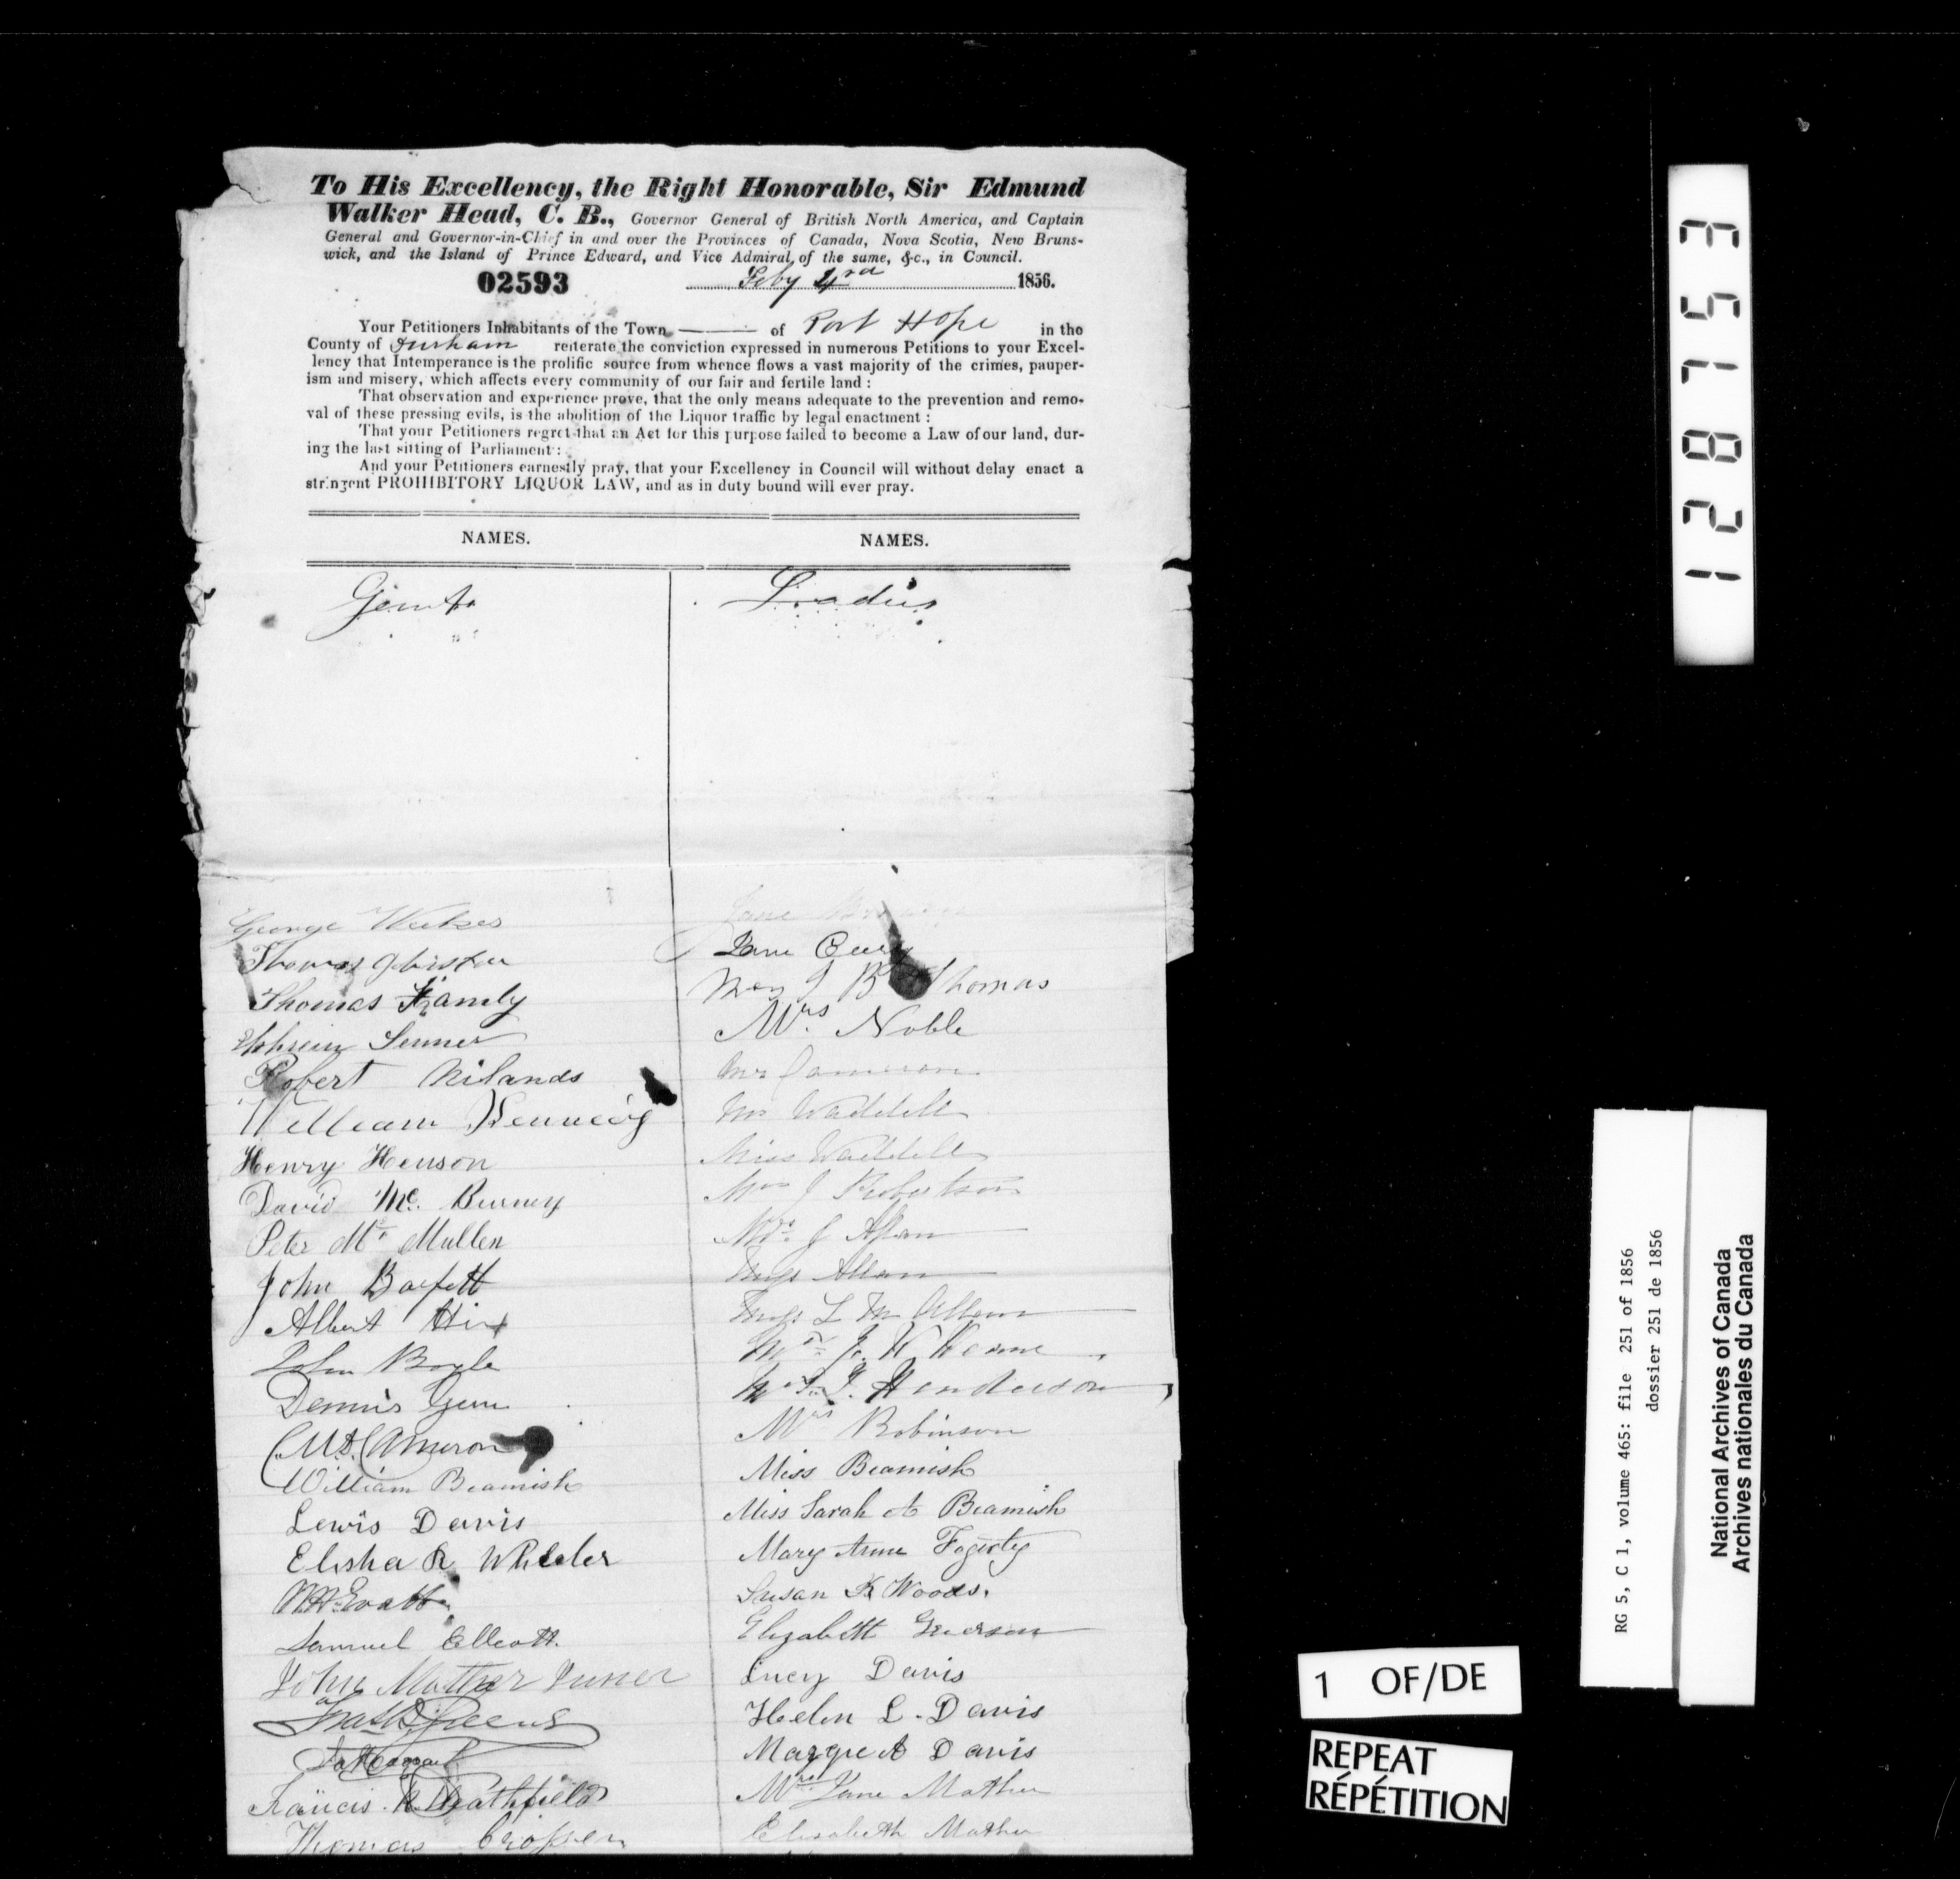 To His Excellency, the Right Honorable, Sir Edmund
Walker Head, C. B., Governor General of British North America, and Captain
General and Governor-in-Chief in and over the Provinces of Canada, Nova Scotia, New Bruns-
wick, and the Island of Prince Edward, and Vice Admiral of the same, &c., in Council.
02593
Feby 1856.
Your Petitioners Inhabitants of the Town of Port Hope in the
County of Durham reiterate the conviction expressed in numerous Petitions to your Excel-
lency that Intemperance is the prolific source from whence flows a vast majority of the crimes, pauper-
ism and misery, which affects every community of our fair and fertile land :
That observation and experience prove, that the only means adequate to the prevention and remo-
val of these pressing evils, is the abolition of the Liquor traffic by legal enactment :
That your Petitioners regret that an Act for this purpose failed to become a Law of our land, dur-
ing the last sitting of Parliament :
And your Petitioners earnestly pray, that your Excellency in Council will without delay enact a
stringent PROHIBITORY LIQUOR LAW, and as in duty bound will ever pray.
NAMES.
Gents
George
Thomas
Thomas
Robert Nilands
William Kennedy
Henry Henson
David Mc. Burney
Peter Mc Mullen
John Barfett
Albert Hix
John Boyle
Dennis
Cameron
William Beamish
Lewis Davis
Elisha R Wheeler
Samuel
John Mather
Francis
Thomas
NAMES.
Ladies
Jane
Jane
J B Thomas
Mrs. Noble
Mrs Cameron
Waddell
Miss Waddell
Mrs J Robertson
Mrs. J
Allan
L M Allan
Mrs J.
J. Henderson
Mrs Robinson
Miss Beamish
Miss Sarah A Beamish
Mary Anne Fogerty
Susan K Woods.
Elizabeth Grierson
Lucy Davis
Helen L. Davis
Margret Davis
Mrs. Jane Mather
Elisabeth Mather
128753
RG 5, C 1, volume 465: file 251 of 1856
dossier 251 de 1856
National Archives of Canada
Archives nationales du Canada
1 OF/DE
REPEAT
RÉPÉTITION